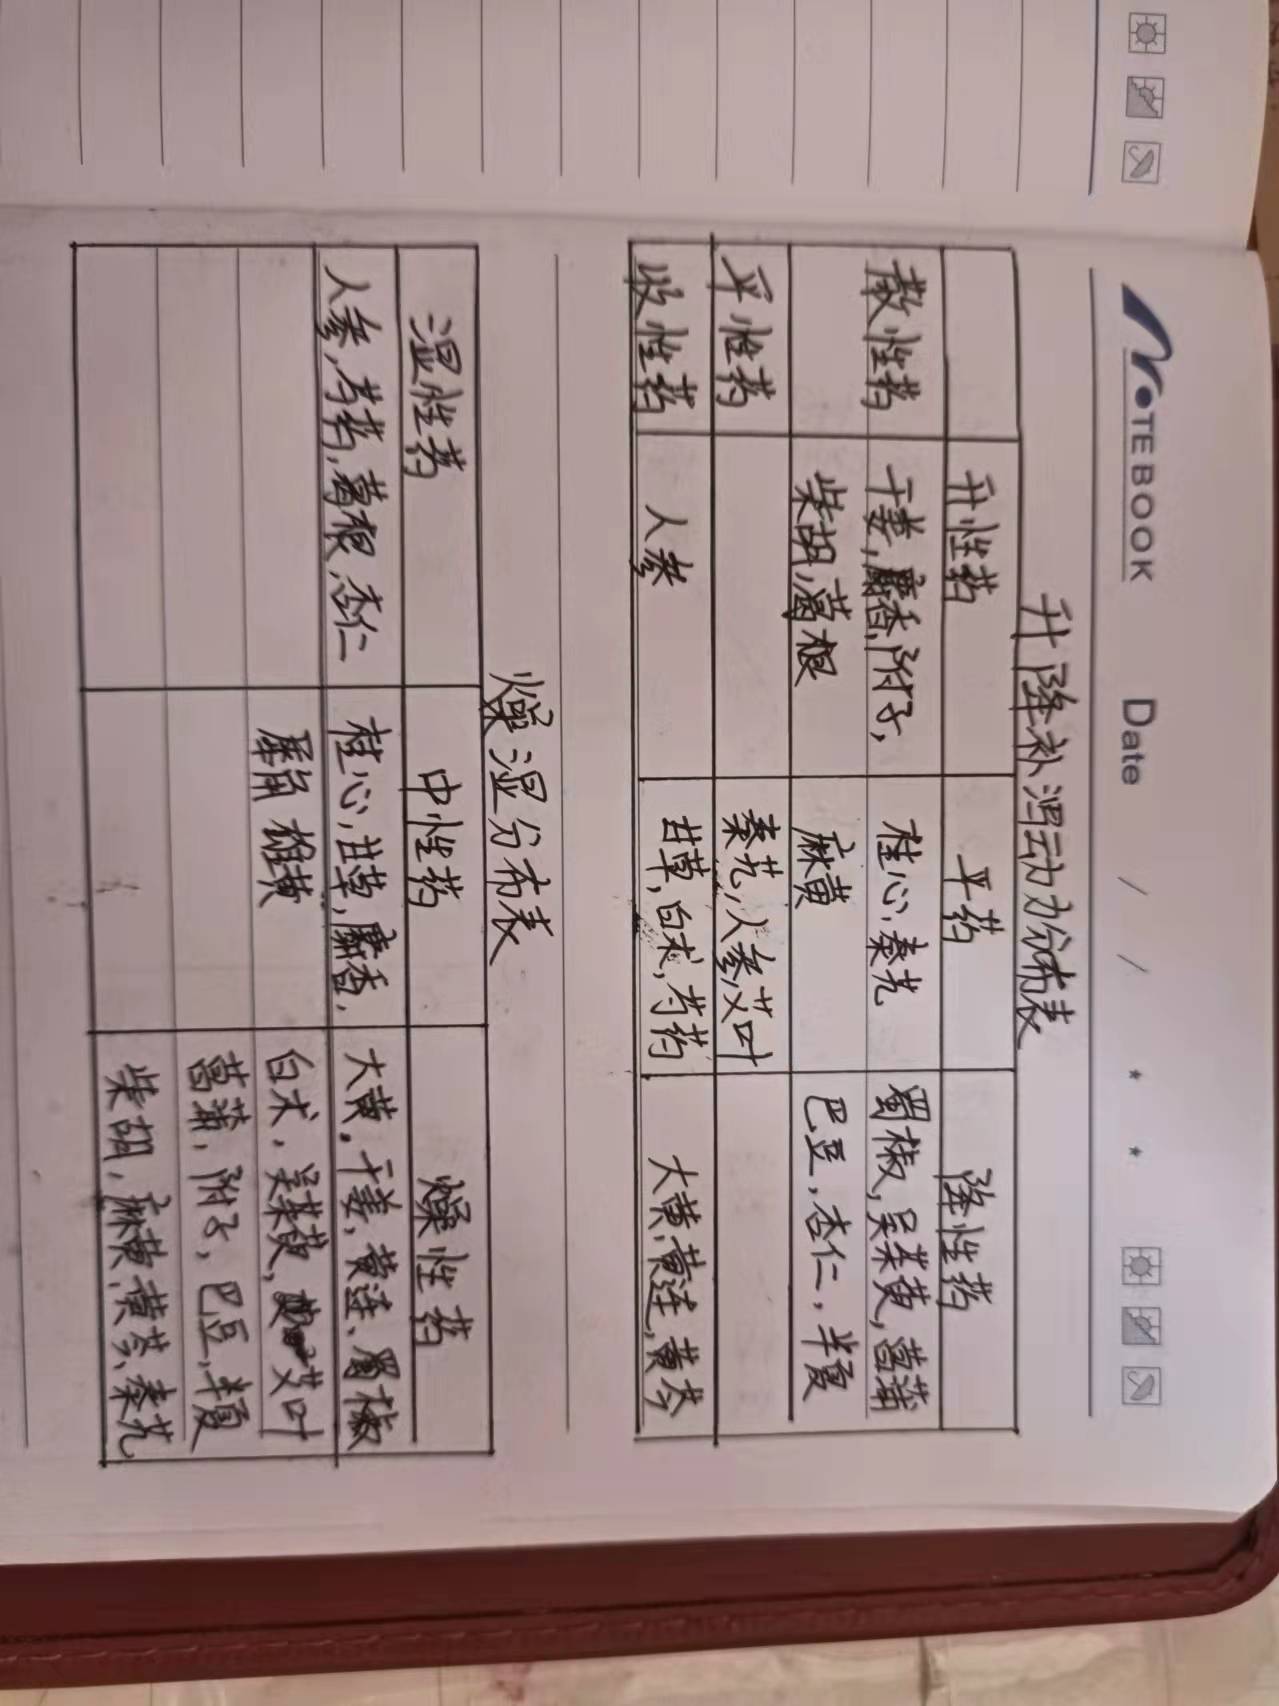 NOTEBOOK Date / / * *
升降补泻动力分布表
升性药 平药 降性药
散性药 干姜,麝香,附子, 桂心,秦艽 蜀椒,吴茱萸,菖蒲
柴胡,葛根 麻黄 巴豆,杏仁,半夏
平性药 秦艽,人参,艾叶
收性药 人参 甘草,白术,芍药 大黄,黄连,黄芩
燥湿分布表
湿性药 中性药 燥性药
人参,芍药,葛根,杏仁 桂心,甘草,麝香, 大黄,干姜,黄连、蜀椒
犀角 雄黄 白术,吴茱萸, 艾叶
菖蒲,附子,巴豆,半夏
柴胡,麻黄,黄芩,秦艽